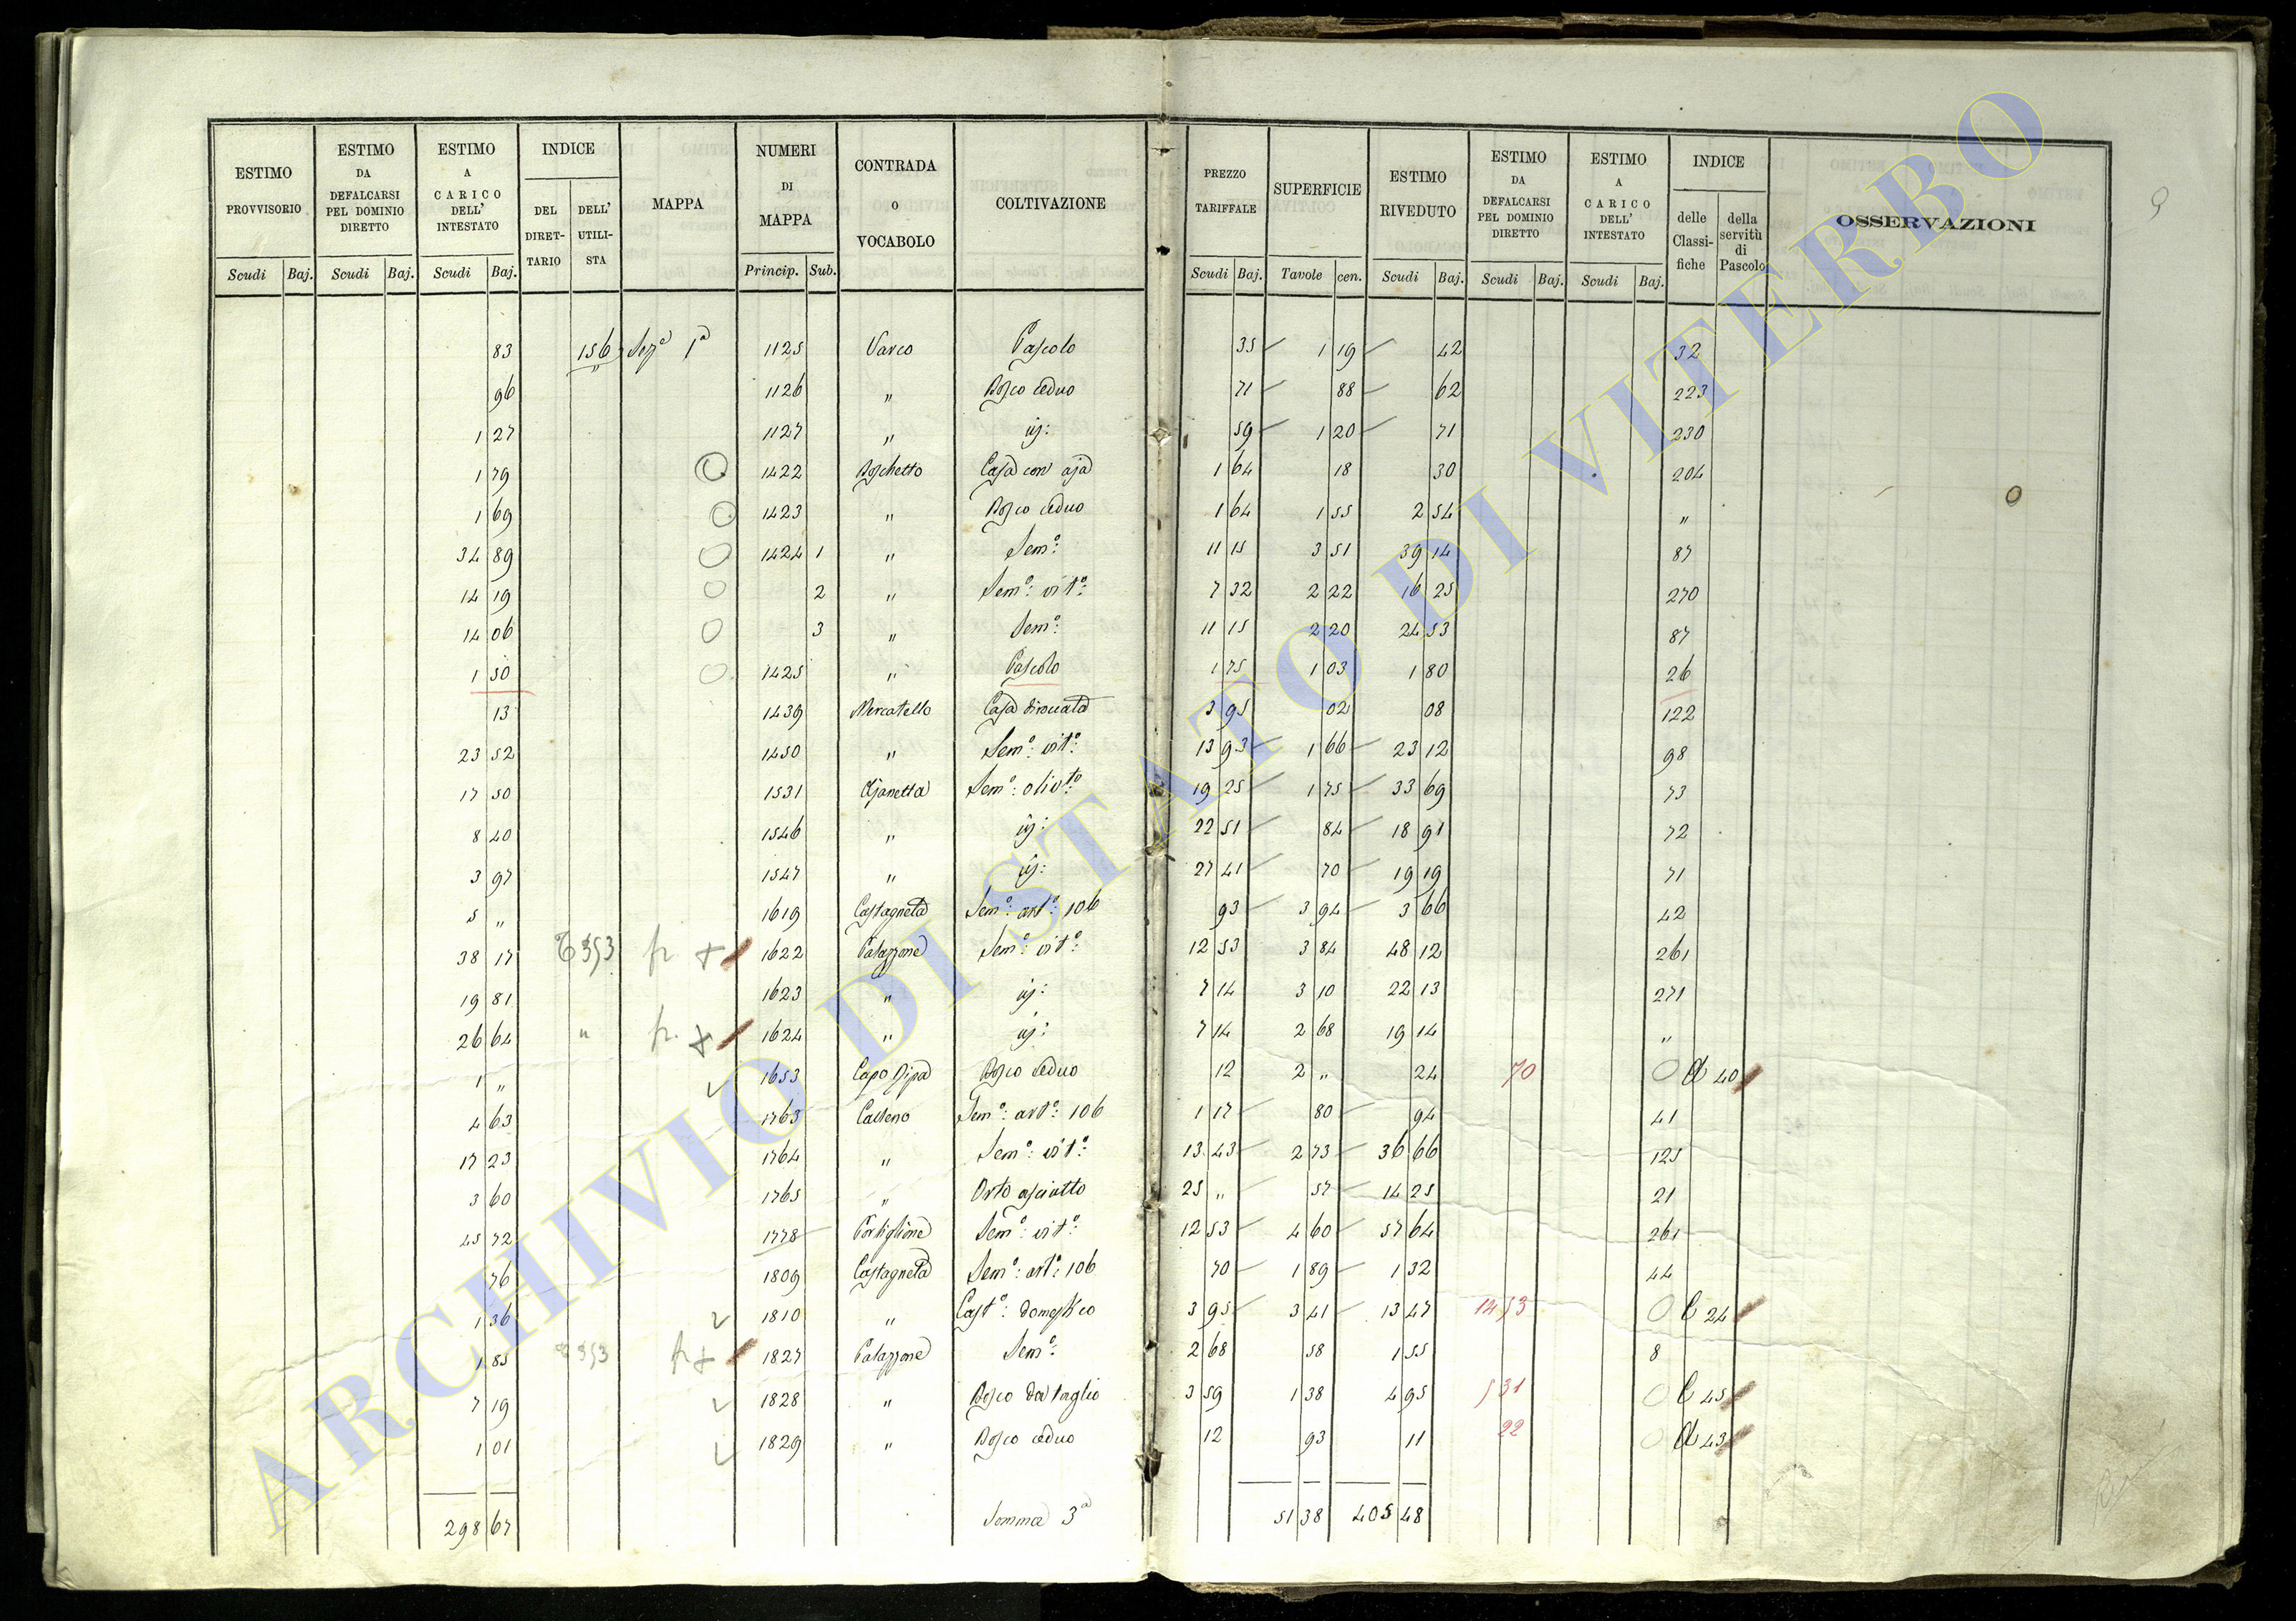 ESTIMO PROVVISORIO | ESTIMO DA DEFALCARSI PEL DOMINIO DIRETTO | ESTIMO A CARICO DELL' INTESTATO | INDICE | MAPPA | NUMERI DI MAPPA | CONTRADA O VOCABOLO | COLTIVAZIONE | PREZZO TARIFFALE | SUPERFICIE | ESTIMO RIVEDUTO | ESTIMO DA DEFALCARSI PEL DOMINIO DIRETTO | ESTIMO A CARICO DELL' INTESTATO | INDICE | OSSERVAZIONI
DEL DIRET-TARIO | DELL' UTILI-STA | delle Classi-fiche | della servitù di Pascolo
Scudi | Baj. | Scudi | Baj. | Scudi | Baj. | Princip. | Sub. | Scudi | Baj. | Tavole | cen. | Scudi | Baj. | Scudi | Baj. | Scudi | Baj.
9
83 | 156 | Sez.a 1a | 1125 | Varco | Pascolo | 35 | 1 19 | 42 | 32
96 | 1126 | " | Bosco ceduo | 71 | 88 | 62 | 223
1 27 | 1127 | " | " | 59 | 1 20 | 71 | 230
1 79 | 1422 | Boschetto | Casa con aja | 1 64 | 18 | 30 | 204
1 69 | 1423 | " | Bosco ceduo | 1 64 | 1 55 | 2 54 | "
34 89 | 1424 | 1 | " | Sem.o: | 11 15 | 3 51 | 39 14 | 87
14 19 | 2 | " | Sem.o: vit.o: | 7 32 | 2 22 | 16 25 | 270
14 06 | 3 | " | Sem.o: | 11 15 | 2 20 | 24 53 | 87
1 50 | 1425 | " | Pascolo | 1 75 | 1 03 | 1 80 | 26
13 | 1439 | Mercatello | Casa diroccata | 3 95 | 02 | 08 | 122
23 52 | 1450 | " | Sem.o: vit.o: | 13 93 | 1 66 | 23 12 | 98
17 50 | 1531 | Sem.o: oliv.to: | 19 25 | 1 75 | 33 69 | 73
8 40 | 1546 | " | 22 51 | 84 | 18 91 | 72
3 97 | 1547 | " | 27 41 | 70 | 19 19 | 71
5 " | 1619 | Castagneta | Sem.o: art.o: 106 | 93 | 3 94 | 3 66 | 42
38 17 | fr | 1622 | Palazzone | Sem.o: vit.o: | 12 53 | 3 84 | 48 12 | 261
19 81 | 1623 | " | 7 14 | 3 10 | 22 13 | 271
26 64 | " | fr. | 1624 | " | 7 14 | 2 68 | 19 14 | "
1 " | 1653 | Capo Ripa | Bosco ceduo | 12 | 2 " | 24 | 70 | 40
4 63 | 1763 | Sem.o: art.o: 106 | 1 17 | 80 | 94 | 41
17 23 | 1764 | " | Sem.o: vit.o: | 13 43 | 2 73 | 36 66 | 125
3 60 | 1765 | " | Orto asciutto | 25 " | 57 | 14 25 | 21
45 72 | 1778 | Portiglione | Sem.o: vit.o: | 12 53 | 4 60 | 57 64 | 261
76 | 1809 | Castagneta | Sem.o: art.o: 106 | 70 | 1 89 | 1 32 | 44
1 36 | 1810 | " | Cast.o: domestico | 3 95 | 3 41 | 13 47 | 14 53 | 24
1 85 | 1827 | Palazzone | Sem.o: | 2 68 | 58 | 1 55 | 8
7 19 | 1828 | " | Bosco da taglio | 3 59 | 1 38 | 4 95 | 5 31 | 45
1 01 | 1829 | " | Bosco ceduo | 12 | 93 | 11 | 22 | 43
298 67 | Somma 3a | 51 38 | 405 48
ARCHIVIO DI STATO DI VITERBO